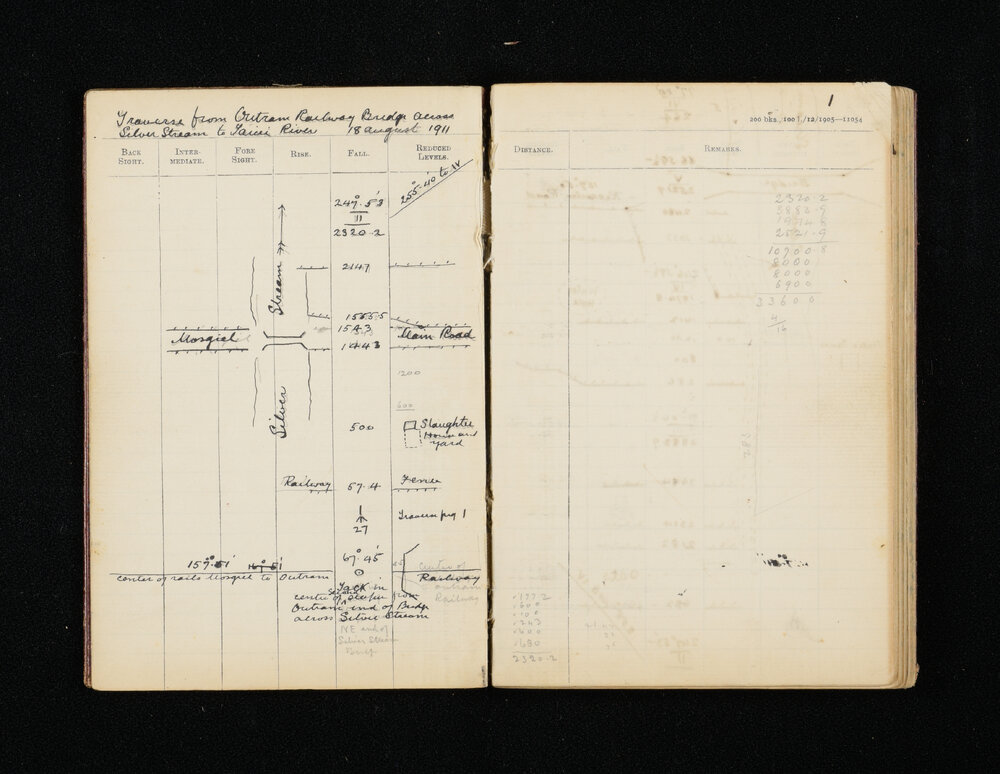 Traverse from Outram Railway Bridge across
Silver Stream to Taieri River 18 August 1911
BACK SIGHT. INTERMEDIATE. FORE SIGHT. RISE. FALL. REDUCED LEVELS.
255° 40' to IV
247° 53'
II
2320.2
Stream
2147
1555.5
1543
Mosgiel Main Road
1443
200
600
Silver
500 Slaughter
House and
Yard
Railway 57.4 Fence
27 Traverse peg 1
157° 51' 167° 51' 67° 45'
center of rails Mosgiel to Outram
centre of
Railway
Outram
Railway
Tack in
centre of 2nd sleeper from
Outram end of Bridge
across Silver Stream
NE end of
Silver Stream
Bridge
1
200 bks., 100 l./12/1905—11054
DISTANCE. REMARKS.
2320.2
3882.9
1974.8
2521.9
10700.8
8000
8000
6900
33600
4
16
1243
600
680
2320.2